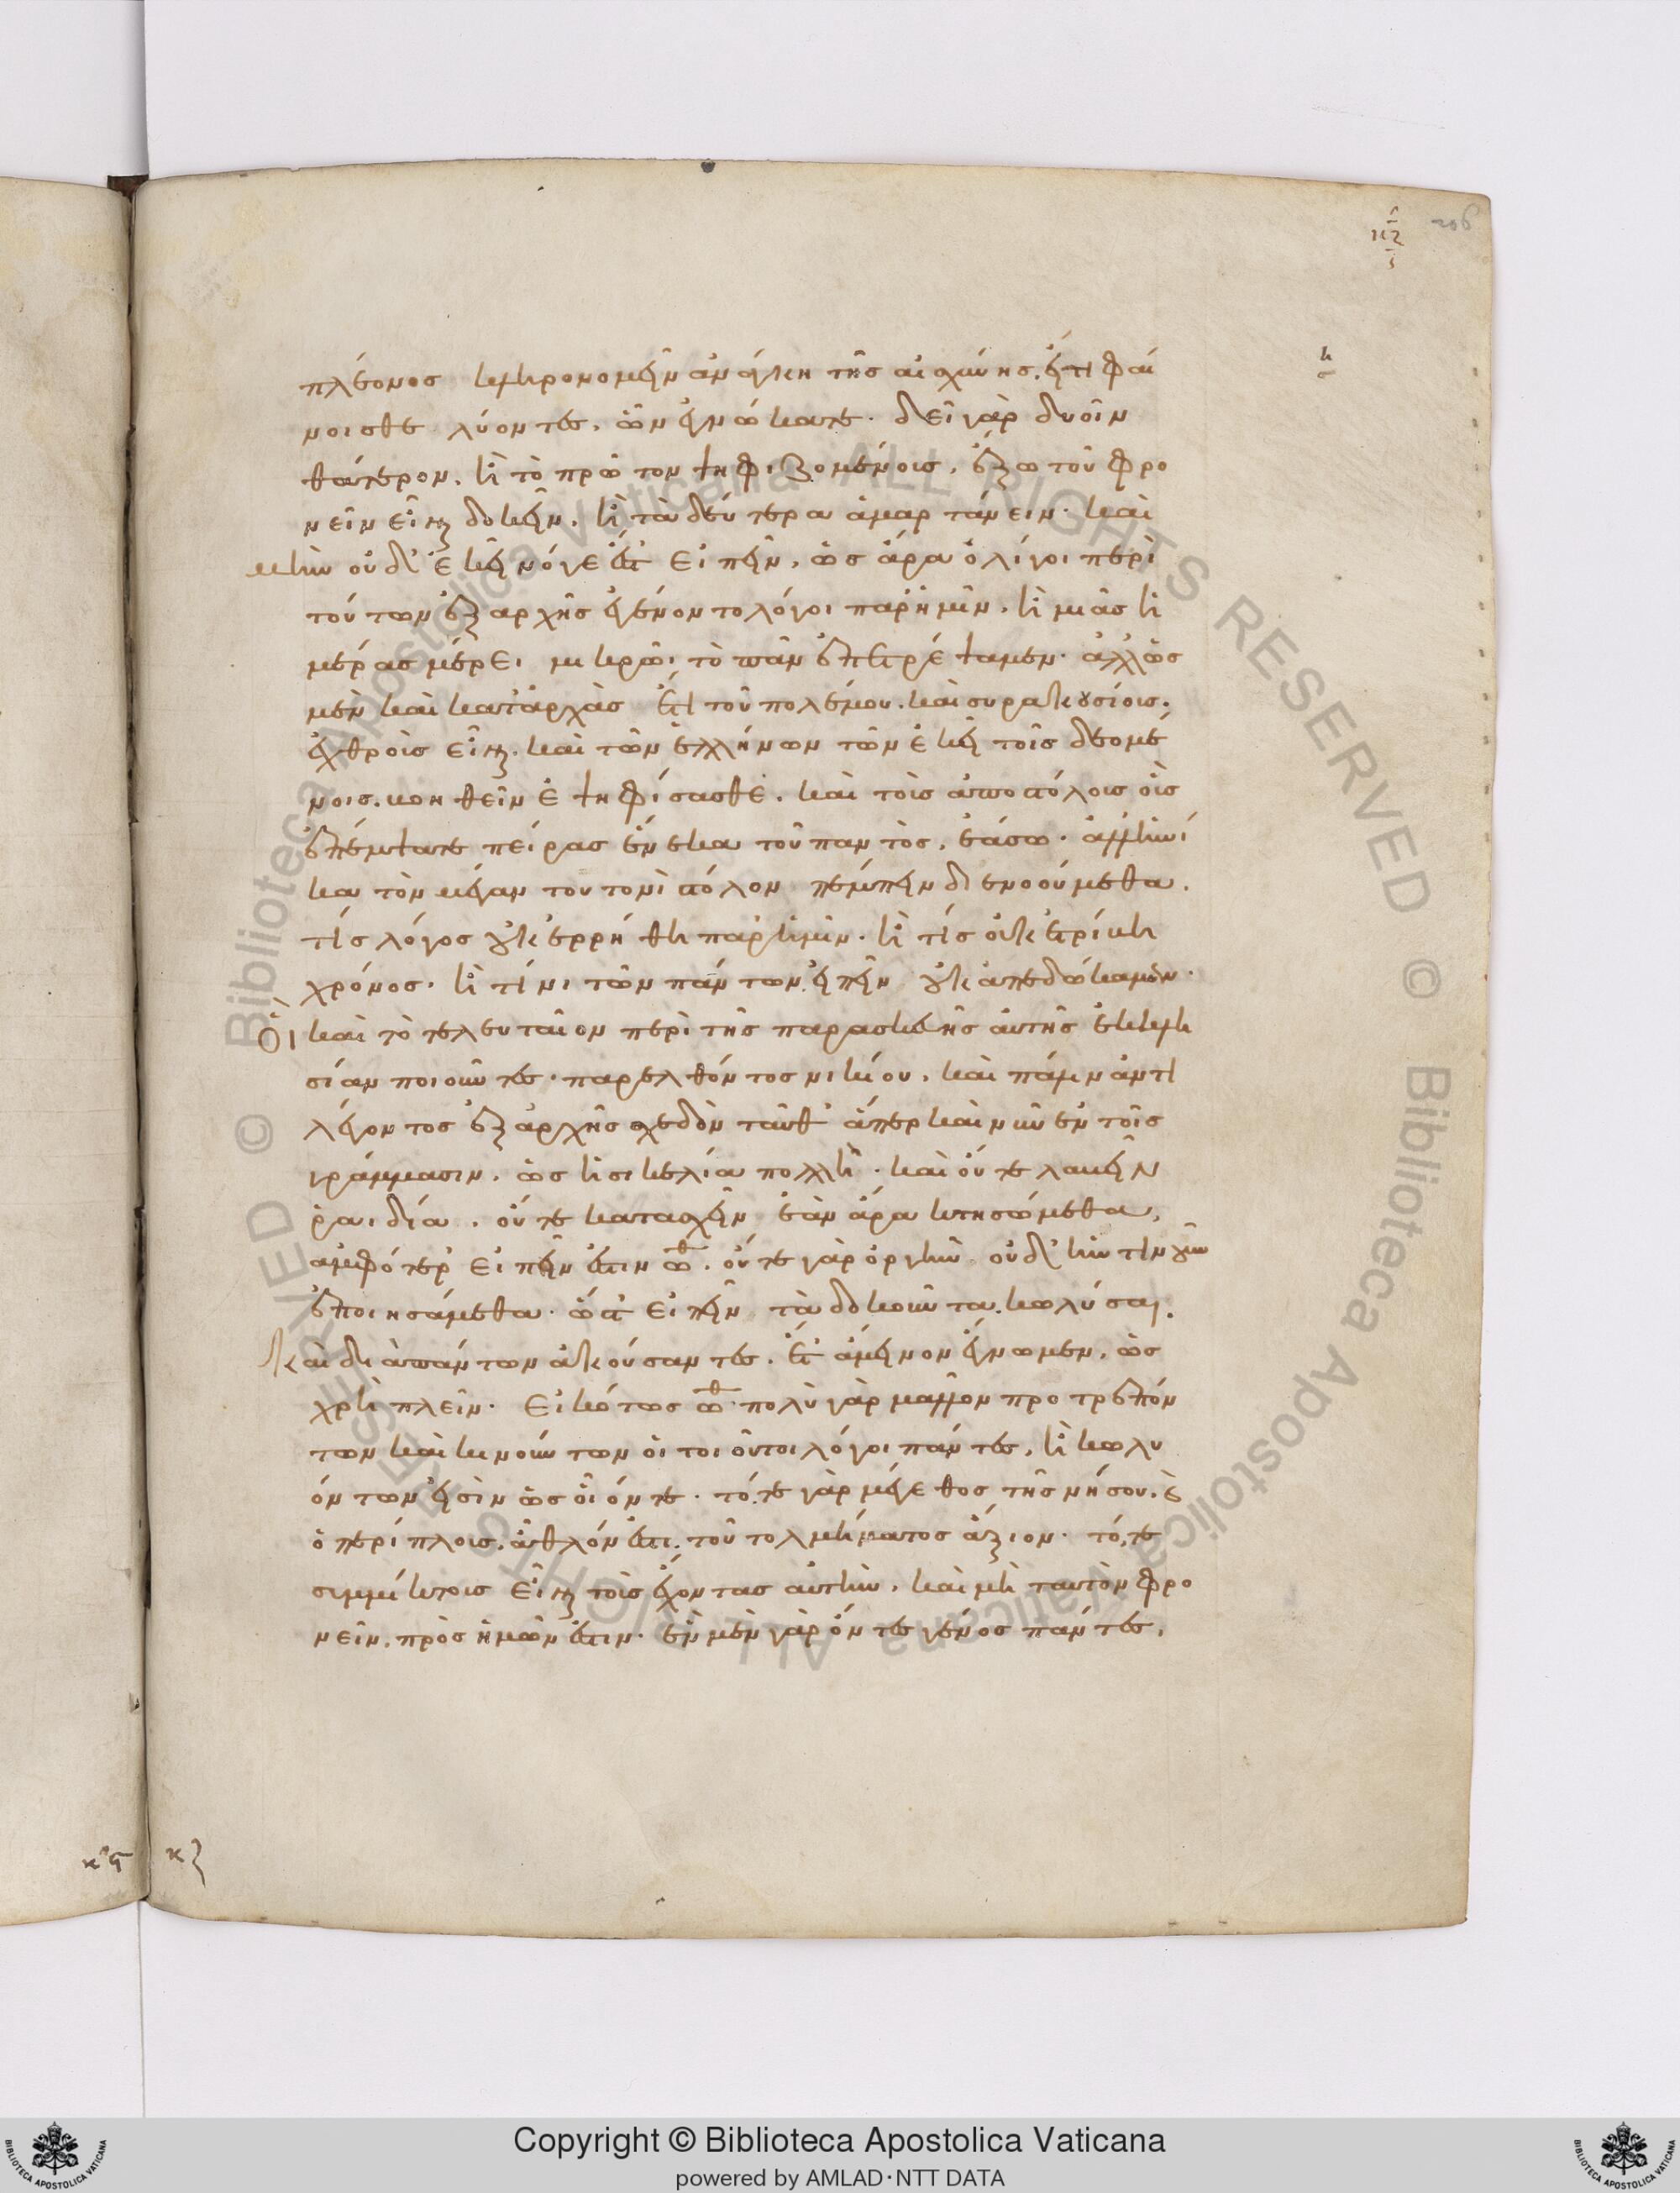 206
κζ
πλέονος κληρονομεῖν ἀνάγκη τῆς αἰσχύνης. ἔτι φαί
νοισθε λύοντες, ὧν ἐγνώκατε. δεῖ γὰρ δυοῖν
θάτερον, ἢ τὸ πρῶτον ψηφιζομένοις, ἔξω τοῦ φρο
νεῖν εἶναι δοκεῖν, ἢ τὰ δεύτερα ἁμαρτάνειν. καὶ
μὴν οὐδ' ἐκεῖνό γε ἔστ εἰπεῖν, ὡς ἄρα ὀλίγοι περὶ
τούτων ἐξαρχῆς ἐγένοντο λόγοι παρ' ἡμῖν, ἢ μιᾶς ἡ
μέρας μέρει μικρῶι τὸ πᾶν ἐπετρέψαμεν. ἀλλ' ὡς
μὲν καὶ κατ' ἀρχὰς ἔτι τοῦ πολέμου. καὶ συρακουσίοις.
ἐχθροὶς εἶναι. καὶ τῶν ἑλλήνων τῶν ἐκεῖ τοῖς δεομέ
νοις. βοηθεῖν ἐψηφίσασθε. καὶ τοὶς ἀποστόλοις οἷς
ἐπέμψατε πείρας ἕνεκα τοῦ παντὸς, ἐάσω. ἀλλ' ἡνί
κα τὸν μέγαν τουτονὶ στόλον πέμπειν διενοούμεθα.
τίς λόγος οὐκ ἐρρήθη παρ' ἡμῖν. ἢ τίς οὐκ ἐτρίβη
χρόνος. ἢ τίνι τῶν πάντων εἰπεῖν οὐκ ἀπεδώκαμεν.
Οἳ καὶ τὸ τελευταῖον περὶ τῆς παρασκευῆς αὐτῆς ἐκκλη
σίαν ποιοῦντες. παρελθόντος νικίου, καὶ πάλιν ἀντι
λέγοντος ἐξ ἀρχῆς σχεδὸν ταῦθ' ἅπερ καὶ νῦν ἐν τοῖς
γράμμασιν, ὡς ἡ σικελία πολλὴ. καὶ οὔτε λαβεῖν
ῥαιδία. οὔτε κατασχεῖν ἐὰν ἄρα κτησώμεθα,
ἀμφότερ' εἰπεῖν ἔστιν ὀρθ. οὔτε γὰρ ὀργὴν οὐδ' ἥν τιν' οὖν
ἐποιησάμεθα. ὥστ' εἰπεῖν τὰ δοκοῦντα. κωλύσαι.
καὶ δι' ἁπάντων ἀκούσαντες. ἔτ' ἄμεινον ἔγνωμεν, ὡς
χρὴ πλεῖν. εἰκότως. πολὺ γὰρ μᾶλλον προτρεπόν
των καὶ κινούντων οἱ τοιοῦτοι λόγοι πάντες, ἢ κωλυ
όντων εἰσὶν ὡς οἷόν τε. τό, τε γὰρ μέγεθος τῆς νήσου. καὶ
ὁ περίπλοις. ἆθλόν ἐστι τοῦ τολμήματος ἄξιον. τό, τε
συμμίκτοις εἶναι τοὶς ἔχοντας αὐτὴν, καὶ μὴ ταυτὸν φρο
νεῖν, πρὸς ἡμῶν ἐστιν. ἓν μὲν γὰρ ὄντες γένος πάντες,
κς
κζ
Copyright © Biblioteca Apostolica Vaticana
powered by AMLAD·NTT DATA